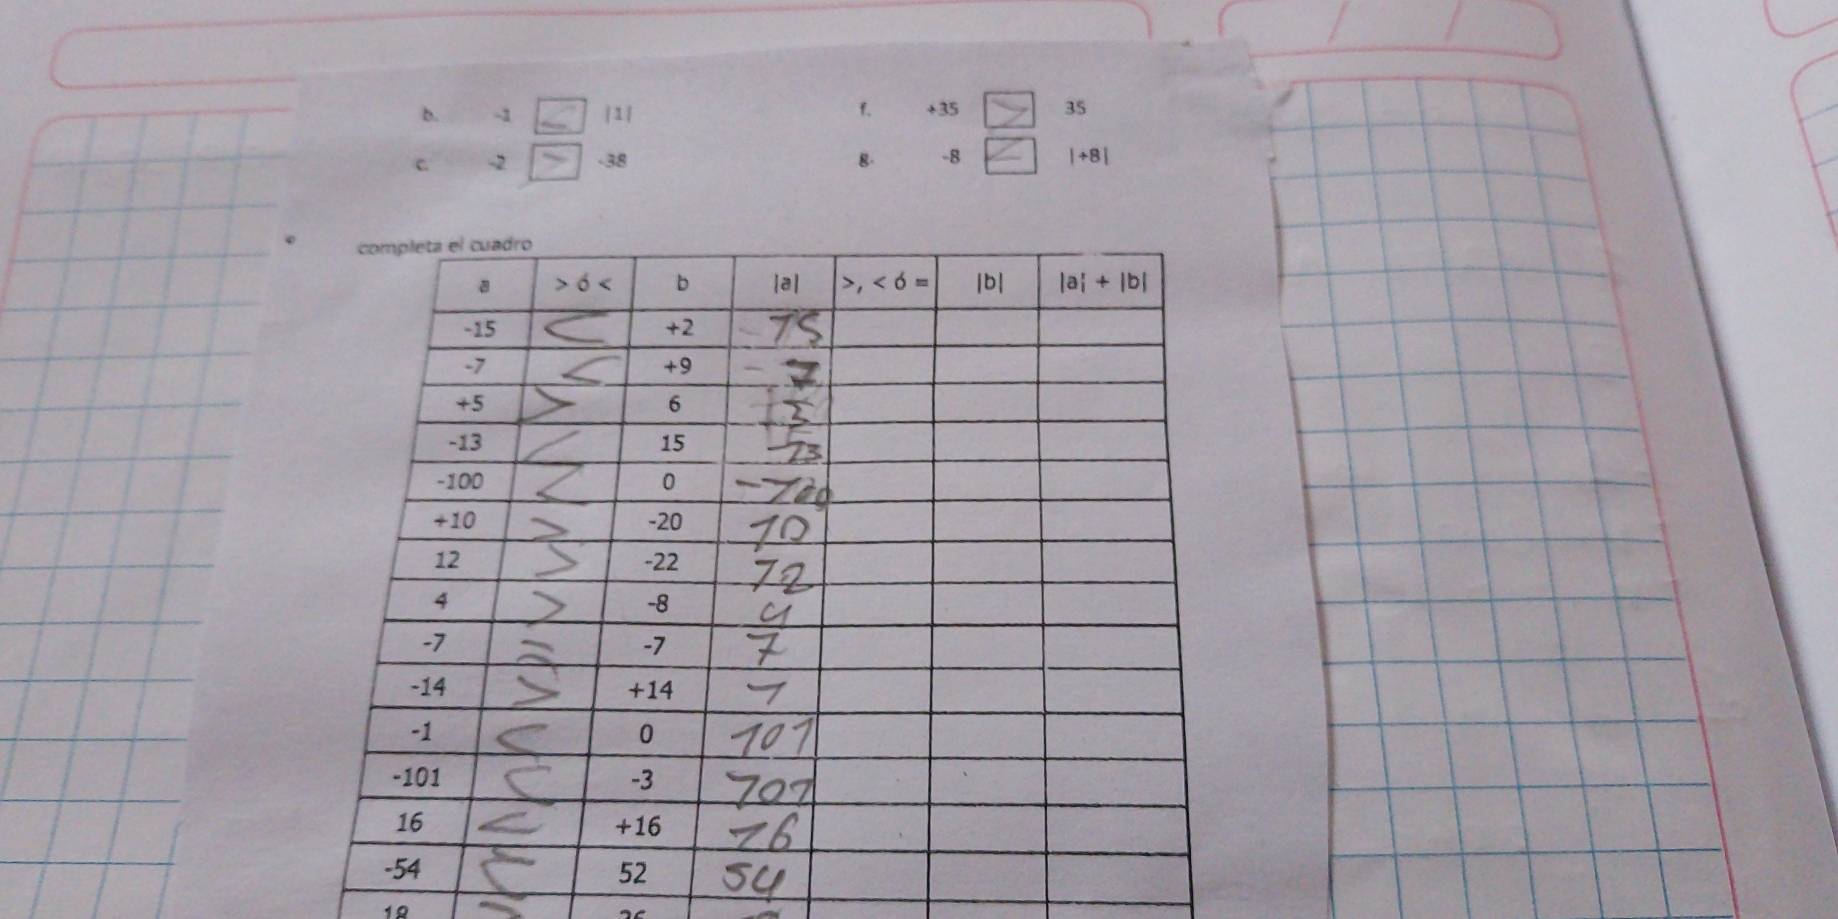 b. -1 < |1| f. +35 > 35
c. -2 > -38 g. -8 < |+8|
completa el cuadro
a > ó < b |a| >, < ó = |b| |a| + |b|
-15 < +2 -15
-7 < +9 - 7
+5 > 6
-13 < 15 -13
-100 < 0 -100
+10 > -20 10
12 > -22 12
4 > -8 4
-7 = -7 7
-14 > +14 1
-1 < 0 101
-101 < -3 101
16 < +16 16
-54 < 52 54
18